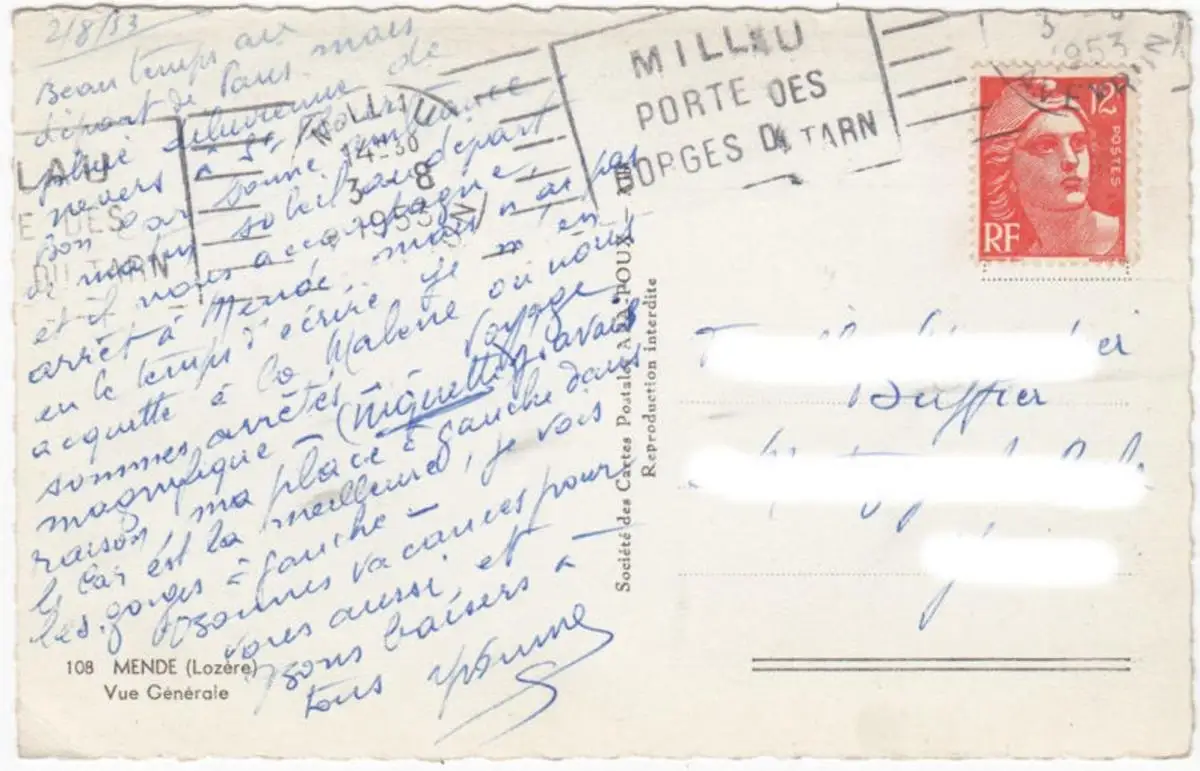 2/8/53
Beau temps au
départ de Paris mais
pluie diluvienne de
nevers à St
bon car bonne
ce matin soleil au départ
et il nous accompagne,
arrêt à Mende, mais n'ai pas
eu le temps d'écrire je m'en
acquitte à la Malène où nous
sommes arrêtés - Voyage
magnifique - (Miquette) avait
raison, ma place à gauche dans
le car est la meilleure, je vois
les gorges à gauche -
Bonnes vacances pour
vous aussi, et
bons baisers à
tous Yvonne
108 MENDE (Lozère)
Vue Générale
LAU
E DES
DU TARN
MILLAU
14-30
3 - 8
1953
AVEYRON
MILLAU
PORTE DES
GORGES DU TARN
3 - 8
1953
AVEYRON
12F
POSTES
RF
Société des Cartes Postales
Reproduction interdite
Buffier